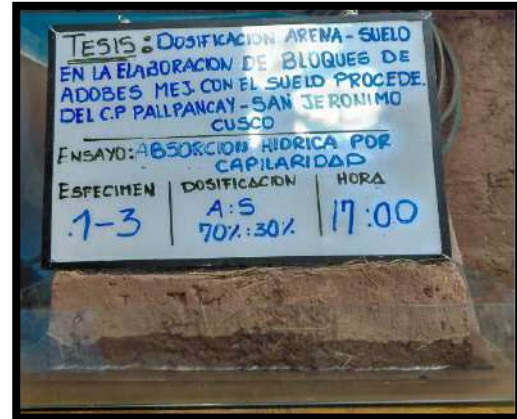 TESIS: DOSIFICACION ARENA-SUELO
EN LA ELABORACION DE BLOQUES DE
ADOBES MEJ. CON EL SUELO PROCEDE.
DEL C.P PALLPANCAY-SAN JERONIMO
CUSCO
ENSAYO: ABSORCION HIDRICA POR
CAPILARIDAD
ESPECIMEN DOSIFICACION HORA
.1-3 A:S 17:00
70%:30%